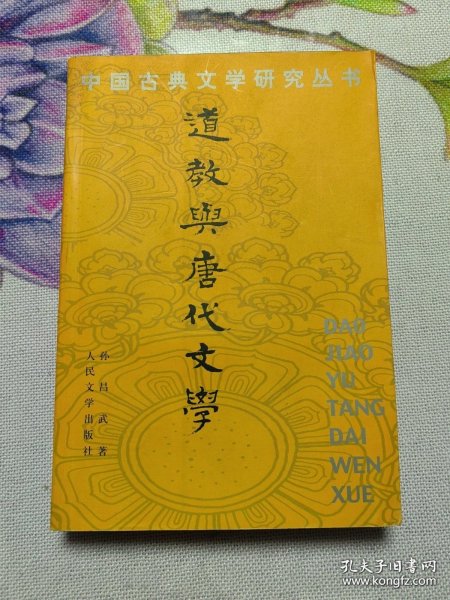 中国古典文学研究丛书
道教與唐代文學
孙昌武著
人民文学出版社
DAO
JIAO
YU
TANG
DAI
WEN
XUE
孔夫子旧书网
www.kongfz.com